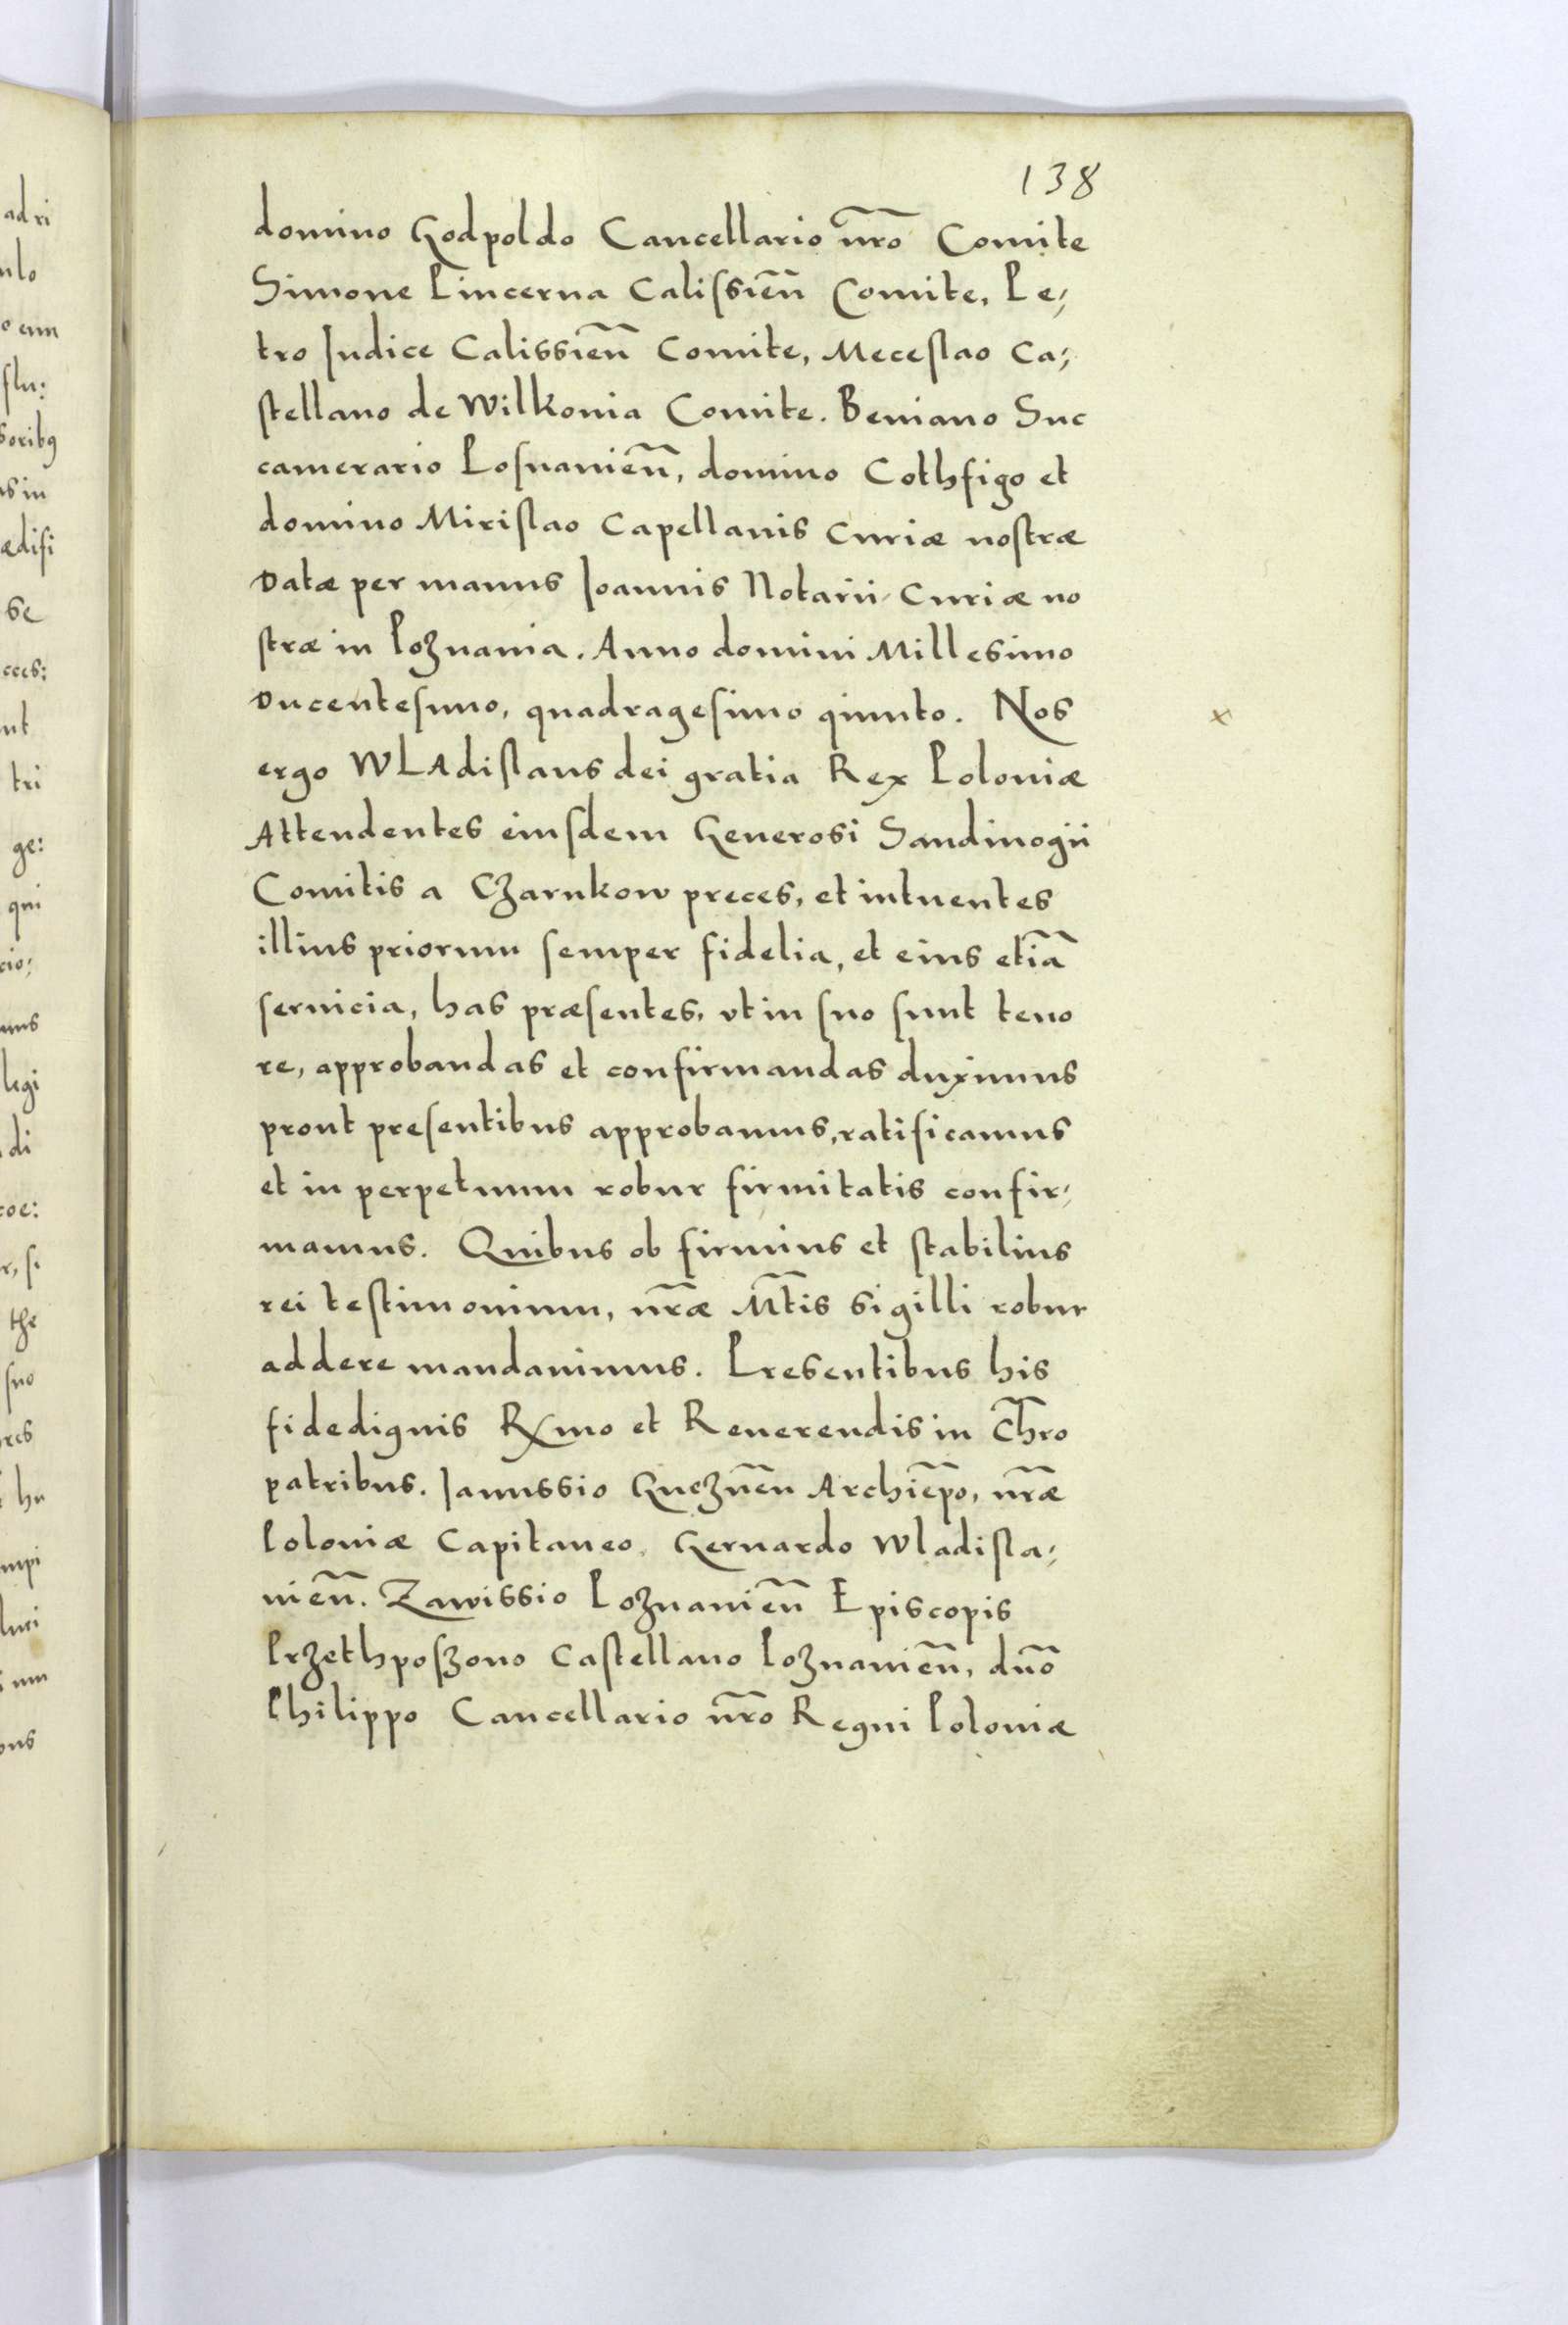 138
domino Godpoldo Cancellario nr̃o Comite
Simone Pincerna Calissień Comite, Pe;
tro Iudice Calissień Comite, Meceslao Ca;
stellano de Wilkonia Comite. Beniano Suc
camerario Posnanień, domino Cothfigo et
domino Mirislao Capellanis Curiæ nostræ
Datæ per manus Ioannis Notarii Curiæ no
stræ in Poznania. Anno domini Millesimo
Ducentesimo, quadragesimo quinto. Nos
ergo WLAdislaus dei gratia Rex Poloniæ
Attendentes eiusdem Generosi Sandiuogii
Comitis a Czarnkow preces, et intuentes
illius priorum semper fidelia, et eius etiã
seruicia, has præsentes, vt in suo sunt teno
re, approbandas et confirmandas duximus
prout presentibus approbamus, ratificamus
et in perpetuum robur firmitatis confir;
mamus. Quibus ob firmius et stabilius
rei testimonium, nr̃æ Mt̃is sigilli robur
addere mandauimus. Presentibus his
fidedignis Rxmo et Reuerendis in Chr̃o
patribus. Ianussio Gneznẽn Archiẽpo, nr̃æ
Poloniæ Capitaneo, Gernardo Wladisla;
uień. Zawissio Poznanień Episcopis
Przethposzono Castellano Poznanień, dño
Philippo Cancellario nr̃o Regni Poloniæ